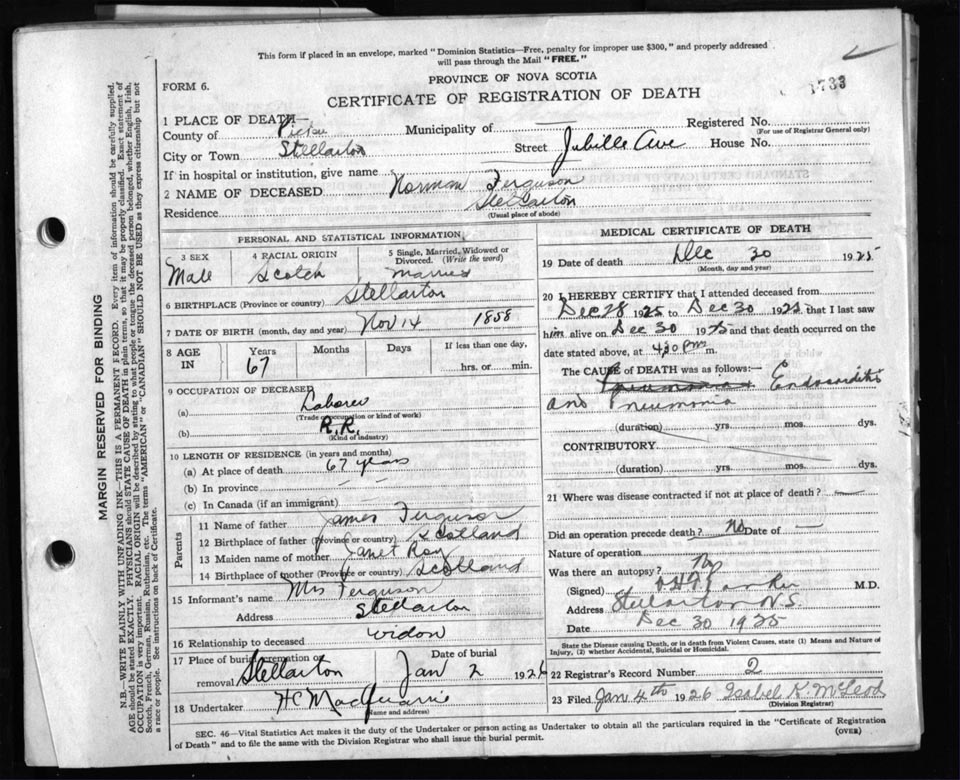 This form if placed in an envelope, marked "Dominion Statistics—Free, penalty for improper use $300," and properly addressed
will pass through the Mail "FREE."
PROVINCE OF NOVA SCOTIA
FORM 6.
CERTIFICATE OF REGISTRATION OF DEATH
1733
1 PLACE OF DEATH—
County of Pictou Municipality of — Registered No.
(For use of Registrar General only)
City or Town Stellarton Street Jubille Ave House No.
If in hospital or institution, give name
2 NAME OF DECEASED Norman Ferguson
Residence Stellarton
(Usual place of abode)
PERSONAL AND STATISTICAL INFORMATION
3 SEX 4 RACIAL ORIGIN 5 Single, Married, Widowed or Divorced. (Write the word)
Male Scotch Married
6 BIRTHPLACE (Province or country) Stellarton
7 DATE OF BIRTH (month, day and year) Nov 14 1858
8 AGE IN Years Months Days If less than one day,
67 hrs. or min.
9 OCCUPATION OF DECEASED
(a) Laborer
(Trade occupation or kind of work)
(b) R.R.
(Kind of industry)
10 LENGTH OF RESIDENCE (in years and months)
(a) At place of death 67 years
(b) In province — —
(c) In Canada (if an immigrant)
Parents
11 Name of father James Ferguson
12 Birthplace of father (Province or country) Scotland
13 Maiden name of mother Janet Roy
14 Birthplace of mother (Province or country) Scotland
15 Informant's name Mrs Ferguson
Address Stellarton
16 Relationship to deceased widow
17 Place of burial, cremation or removal Stellarton Date of burial Jan 2 1926
18 Undertaker H C MacQuarrie
MEDICAL CERTIFICATE OF DEATH
19 Date of death Dec 30 1925
(Month, day and year)
20 I HEREBY CERTIFY that I attended deceased from
Dec 28 1925 to Dec 30 1925 that I last saw
him alive on Dec 30 1925 and that death occurred on the
date stated above, at 4:30 pm m.
The CAUSE of DEATH was as follows:—
Pneumonia Endocarditis
and Pneumonia
(duration) yrs. mos. dys.
CONTRIBUTORY.
(duration) yrs. mos. dys.
21 Where was disease contracted if not at place of death?
Did an operation precede death? No Date of —
Nature of operation
Was there an autopsy? No
(Signed) M.D.
Address Stellarton N.S.
Date Dec 30 1925
State the Disease causing Death, or in death from Violent Causes, state (1) Means and Nature of
Injury, (2) whether Accidental, Suicidal or Homicidal.
22 Registrar's Record Number 2
23 Filed Jan 4th 1926 Isabel K. McLeod
(Division Registrar)
SEC. 46—Vital Statistics Act makes it the duty of the Undertaker or person acting as Undertaker to obtain all the particulars required in the "Certificate of Registration
of Death" and to file the same with the Division Registrar who shall issue the burial permit.
(OVER)
MARGIN RESERVED FOR BINDING
N.B.—WRITE PLAINLY WITH UNFADING INK—THIS IS A PERMANENT RECORD. Every item of information should be carefully supplied.
AGE should be stated EXACTLY. PHYSICIANS should STATE CAUSE OF DEATH in plain terms, so that it may be properly classified. Exact statement of
OCCUPATION is very important. RACIAL ORIGIN will be described by stating to what people or tongue the deceased person belonged, whether English, Irish,
Scotch, French, German, Russian, Ruthenian, etc. The terms "AMERICAN" or "CANADIAN" SHOULD NOT BE USED as they express citizenship but not
a race or people. See instructions on back of Certificate.